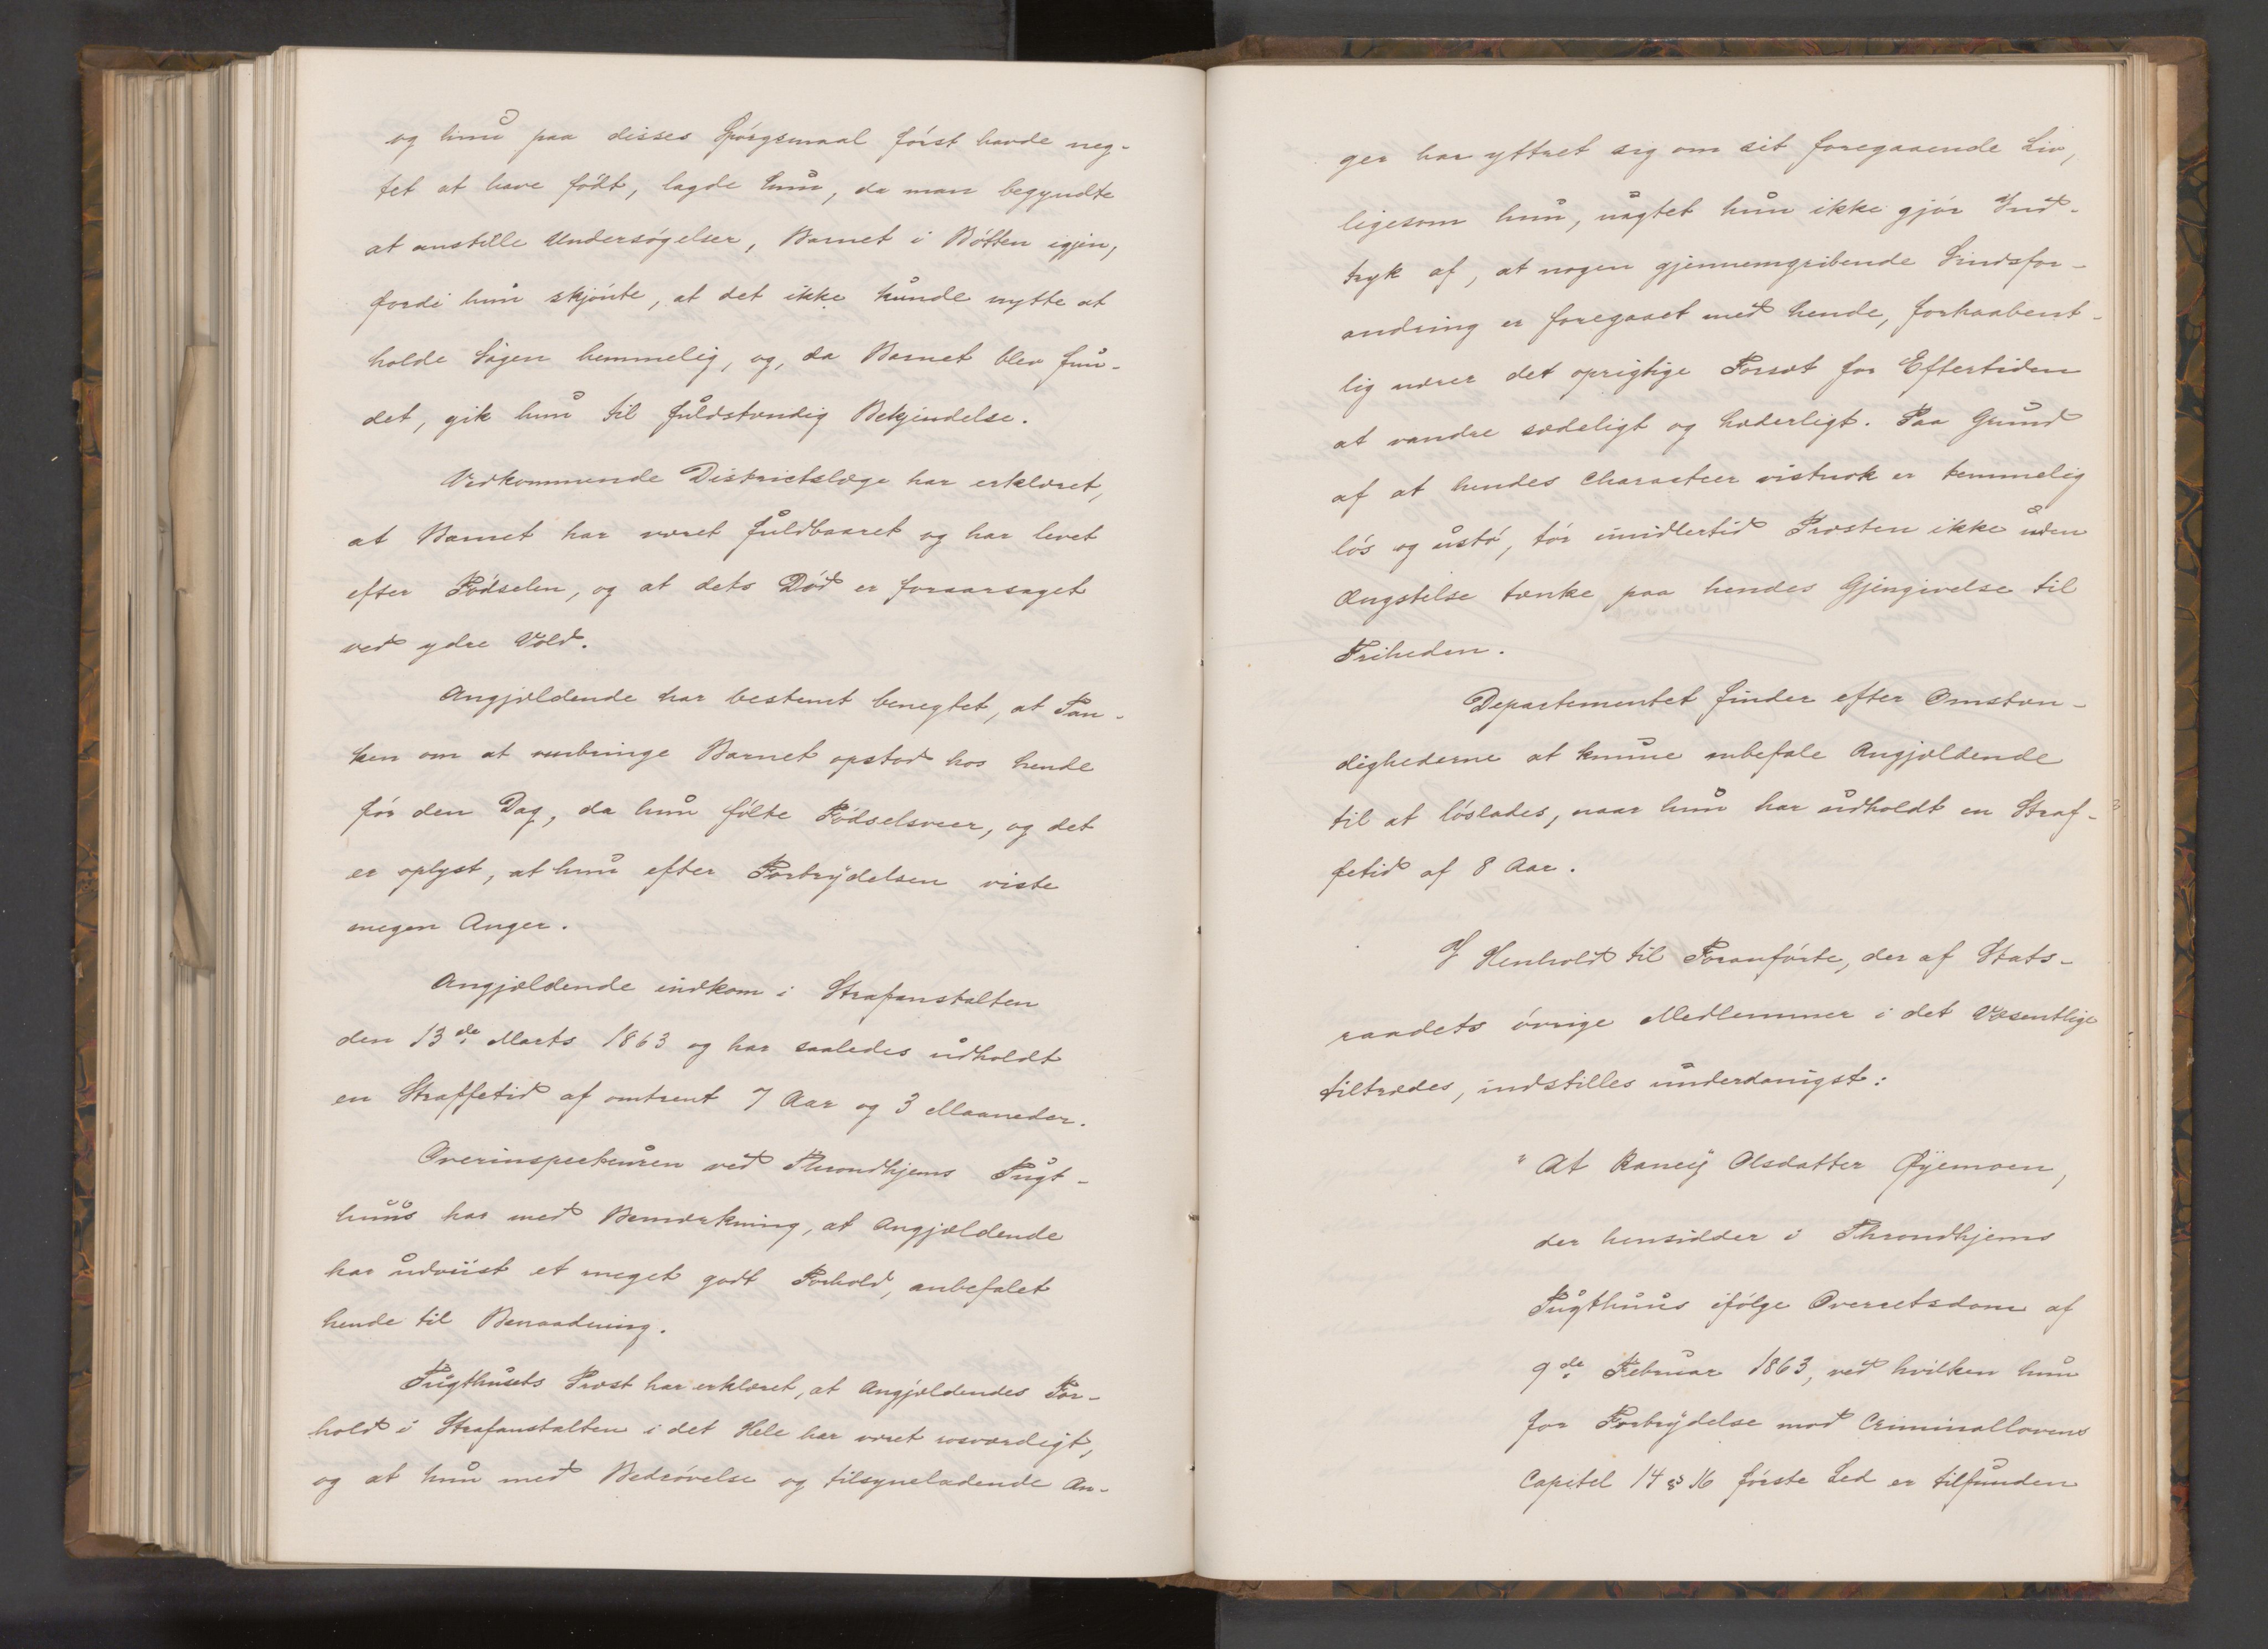 og hun paa disses Spörgsmaal först havde neg-
tet at have födt, lagde hun, da man begyndte
at anstille Undersögelser, Barnet i Bötten igjen,
fordi hun skjönte, at det ikke kunde nytte at
holde Sagen hemmelig, og, da Barnet blev fun-
det, gik hun til fuldstændig Bekjendelse.
Vedkommende Districtslæge har erklæret,
at Barnet har været fuldbaaret og har levet
efter Födselen, og at dets Död er foraarsaget
ved ydre Vold.
Angjældende har bestemt benegtet, at Tan-
ken om at ombringe Barnet opstod hos hende
för den Dag, da hun fölte Födselsveer, og det
er oplyst, at hun efter Forbrydelsen viste
megen Anger.
Angjældende indkom i Strafanstalten
den 13de Marts 1863 og har saaledes udholdt
en Straffetid af omtrent 7 Aar og 3 Maaneder.
Overinspecteuren ved Throndhjems Tugt-
huus har med Bemærkning, at Angjældende
har udviist et meget godt Forhold, anbefalet
hende til Benaadning.
Tugthusets Præst har erklæret, at Angjældendes For-
hold i Strafanstalten i det Hele har været rosværdigt,
og at hun med Bedrövelse og tilsyneladende An-
ger har yttret sig om sit foregaaende Liv,
ligesom hun, uagtet hun ikke gjör Ind-
tryk af, at nogen gjennemgribende Sindsfor-
andring er foregaaet med hende, forhaabent-
lig nærer det oprigtige Forsæt for Eftertiden
at vandre sædeligt og hæderligt. Paa Grund
af at hendes Characteer vistnok er temmelig
lös og ustö, tör imidlertid Præsten ikke uden
Ængstelse tænke paa hendes Gjengivelse til
Friheden.
Departementet finder efter Omstæn-
dighederne at kunne anbefale Angjældende
til at löslades, naar hun har udholdt en Straf-
fetid af 8 Aar.
I Henhold til Foranförte, der af Stats-
raadets övrige Medlemmer i det Væsentlige
tiltrædes, indstilles underdanigst:
"At Raneÿ Olsdatter Øÿemoen,
der hensidder i Throndhjems
Tugthuus ifölge Overretsdom af
9de Februar 1863, ved hvilken hun
for Forbrydelse mod Criminallovens
Capitel 14 § 16 förste Led er tilfunden